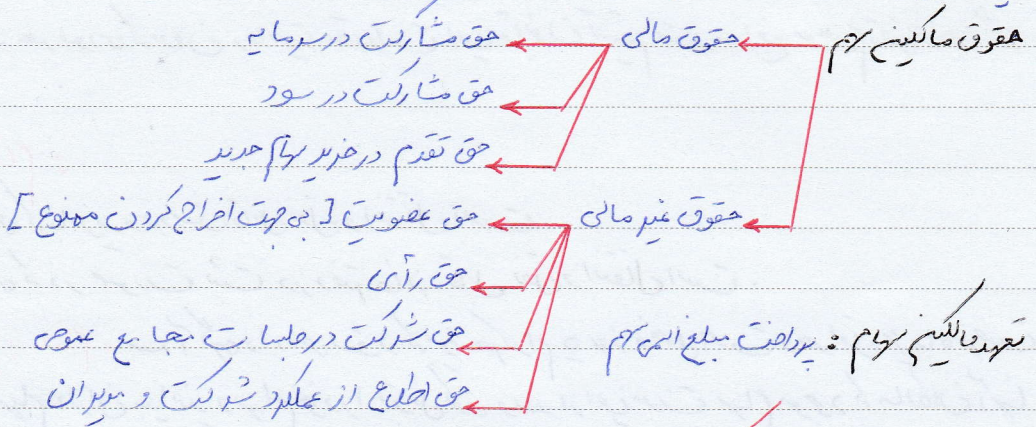 حقوق مالکین سهم حقوق مالی حق مشارکت در سرمایه
حق مشارکت در سود
حق تقدم در خرید سهام جدید
حقوق غیر مالی حق عضویت [بی جهت اخراج کردن ممنوع]
حق رأی
حق شرکت در جلسات مجامع عمومی
حق اطلاع از عملکرد شرکت و مدیران
تعهد مالکین سهام : پرداخت مبلغ اسمی سهم